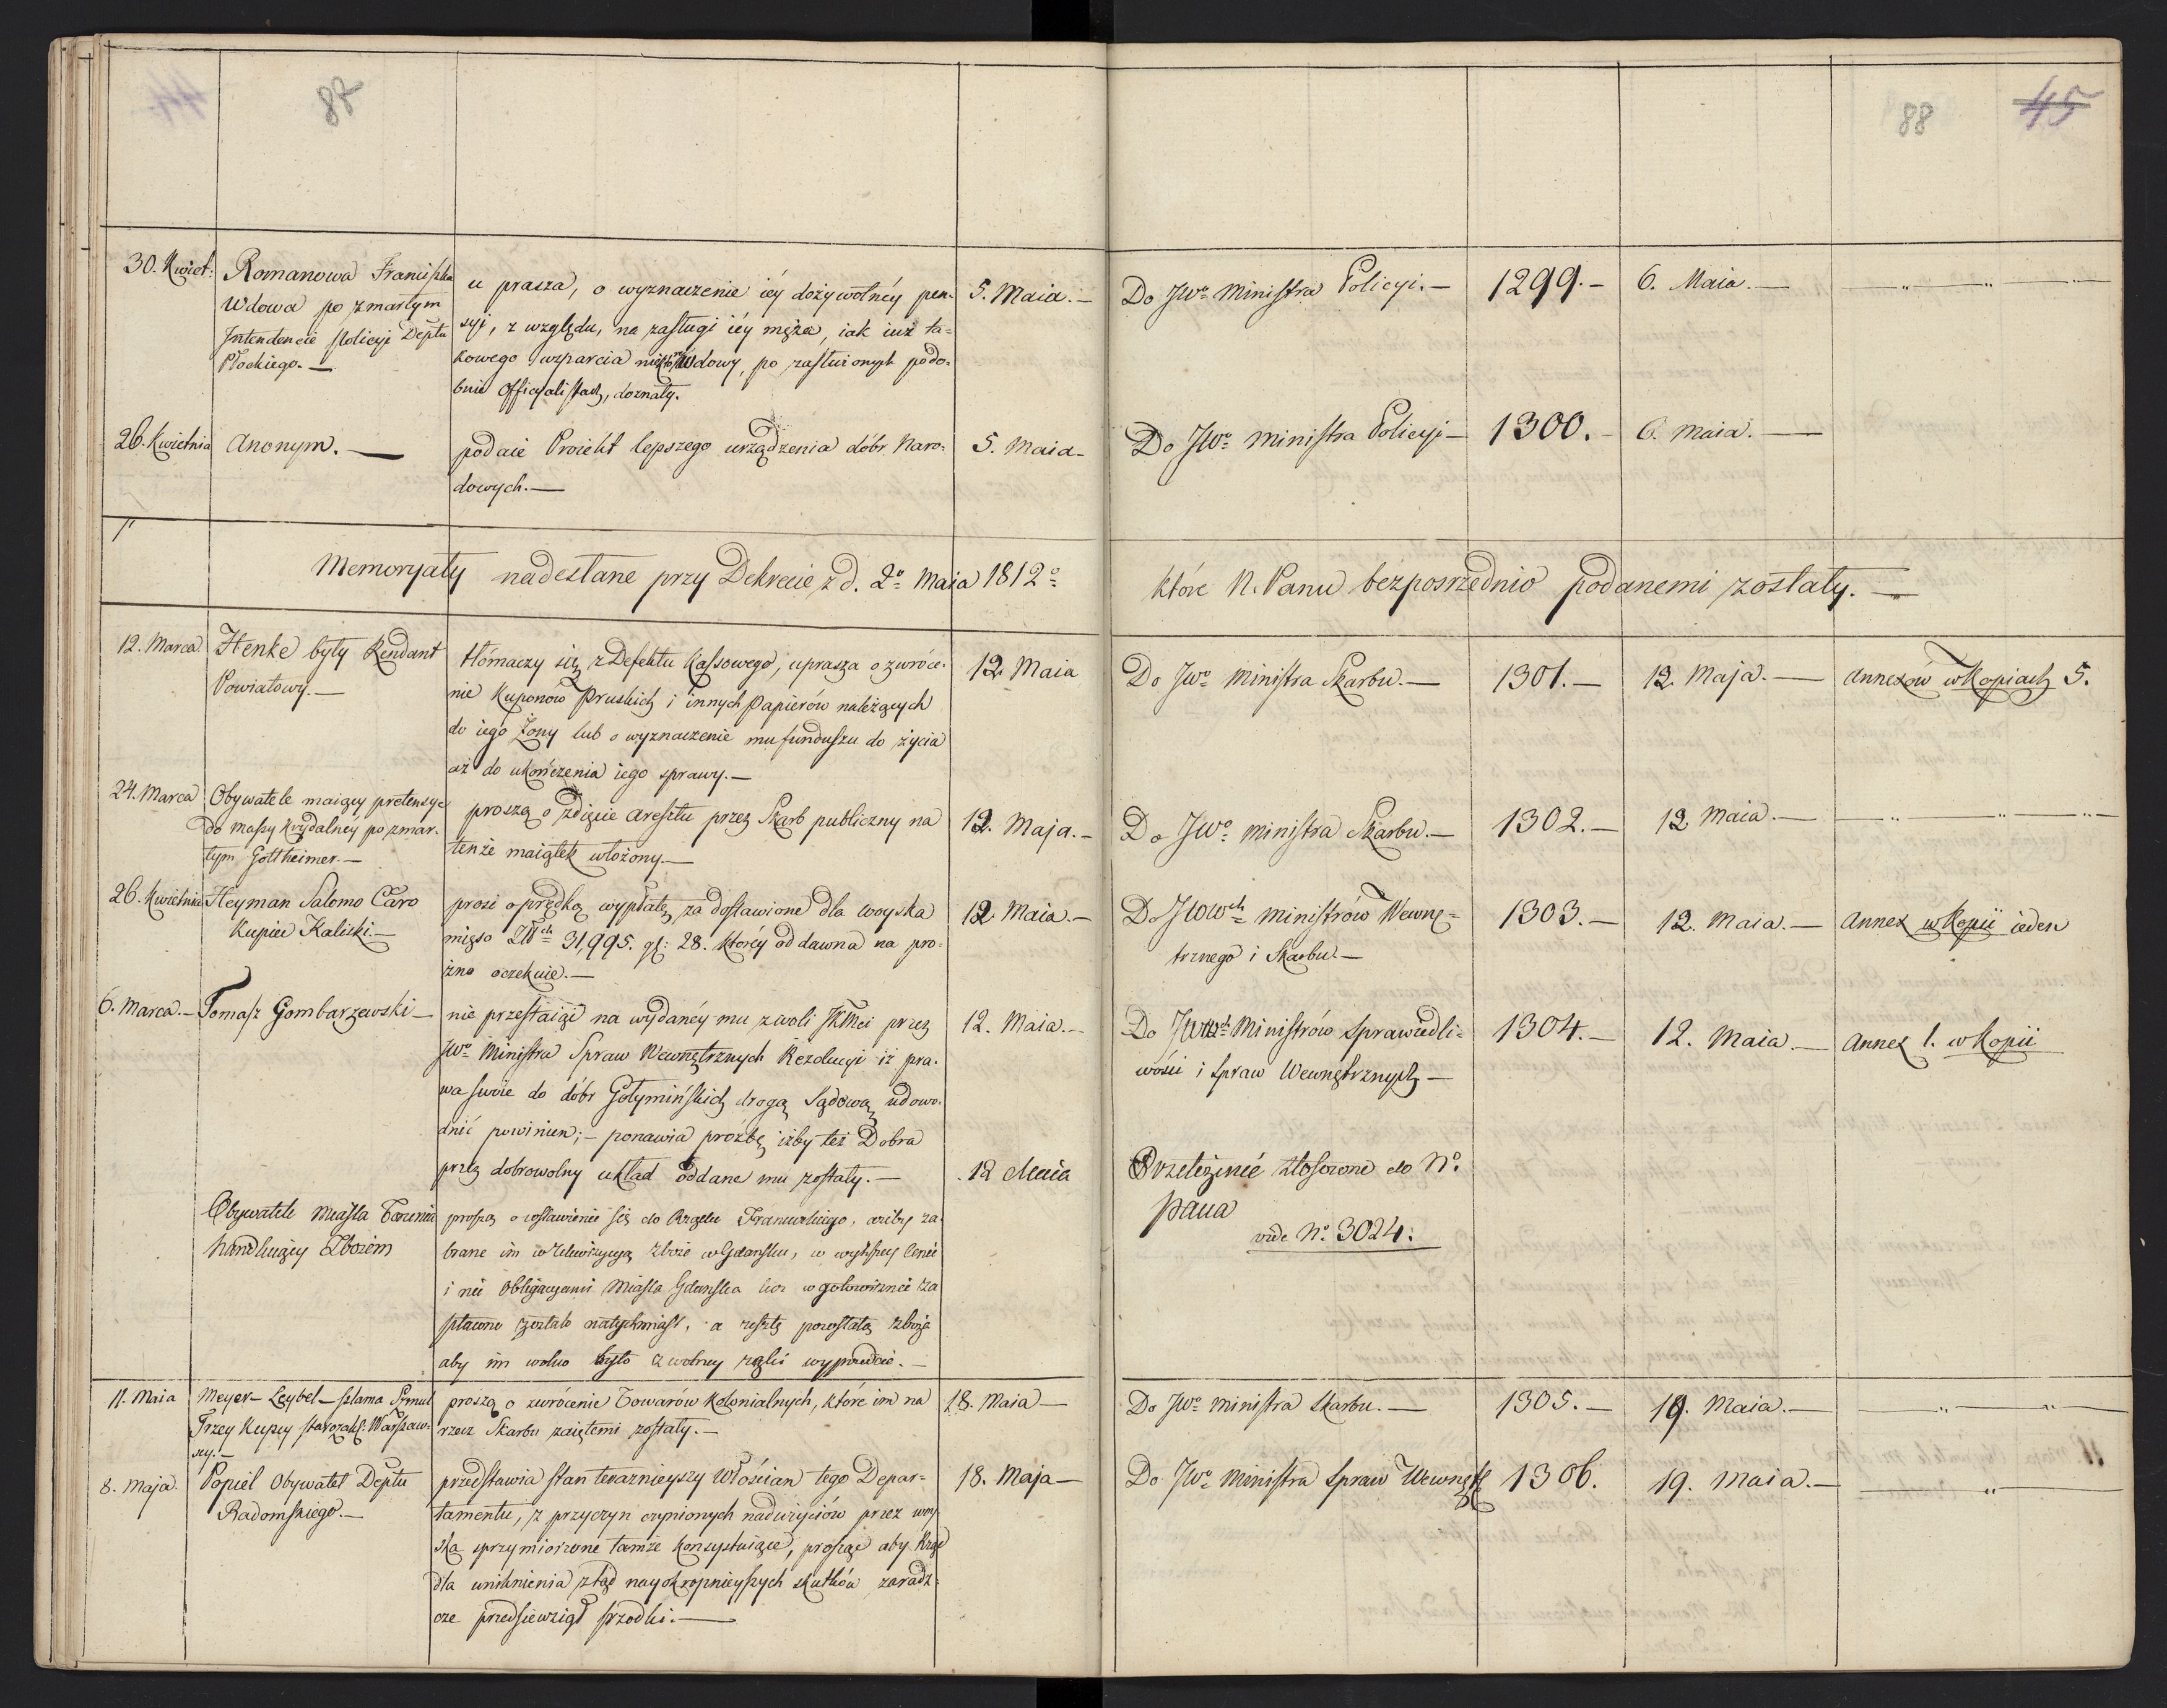 87
88
45
30. Kwiet:
Romanowa Franciszka
Wdowa po zmarłym
Intendencie Policyi Deptu
Płockiego.—
u prasza, o wyznaczenie iéy dożywotnéy pen-
syi, z względu, na zasługi iéy męża, iak iuż ta-
kowego wsparcia Wdowy, po zasłużonych podo-
bnie Officyalistach, doznały.
5. Maia.—
Do JWo Ministra Policyi.—
1299.—
6. Maia.—
26. Kwietnia
Anonym.—
podaie Proiekt lepszego urządzenia dóbr Naro-
dowych.—
5. Maia—
Do JWo Ministra Policyi—
1300.—
6. Maia.—
Memoryały nadesłane przy Dekrecie z d. 2o Maia 1812o które N. Panu bezpośrzednio podanemi zostały.—
12. Marca
Henke były Rendant
Powiatowy.—
tłómaczy się z Defektu Kassowego, uprasza o zwróce-
nie Kuponów Pruskich i innych Papierów należących
do iego Żony lub o wyznaczenie mu funduszu do życia
aż do ukończenia iego sprawy.—
12. Maia
Do JWo Ministra Skarbu.—
1301.—
12. Maja.—
Annexów w Kopiach 5.
24. Marca
Obywatele maiący pretensye
do massy krydalnéy po zmar-
łym Gottheimer.—
proszą o zdięcie Aresztu przez Skarb publiczny na
tenże maiątek włożony.—
12. Maja.—
Do JWo Ministra Skarbu.—
1302.—
12. Maia.—
26. Kwietnia
Heyman Salomo Caro
Kupiec Kaliski.—
prosi o prędką wypłatę za dostawione dla woyska
mięso 31,995. gl: 28. któréy od dawna na pró-
żno oczekuie.—
12. Maia.—
Do JWWch Ministrów Wewnę-
trznego i Skarbu.—
1303.—
12. Maia.—
Annex w Kopii ieden
6. Marca.—
Tomasz Gombarzewski—
nie przestaiąc na wydanéy mu z woli JKMci przez
JWo Ministra Spraw Wewnętrznych Rezolucyi iż pra-
wa swoie do dóbr Gołymińskich drogą Sądową udowo-
dnić powinien;— ponawia prozbę iżby też Dobra
przez dobrowolny układ oddane mu zostały.—
12. Maia.—
Do JWWch Ministrów Sprawiedli-
wości i Spraw Wewnętrznych—
1304.—
12. Maia.—
Annex 1. w Kopii
Obywatele Miasta Torunia
handluiący Zbożem
proszą o wstawienie się do Rządu Francuzkiego, ażeby za-
brane im zboże w Gdańsku, w wyższey cenie
i nie Obligacyami Miasta Gdańska lecz w gotowiznie za
płacone zostało natychmiast, a resztę pozostałą zboża
aby im wolno było
12 Maia
złożone do No
Pana
vide No 3024.
11. Maia
Meyer— Leybel— Szlama Szmul
Trzey Kupcy starozak: Warszaw-
scy.—
proszą o zwrócenie Towarów Kolonialnych, które im na
rzecz Skarbu zaiętemi zostały.—
18. Maia—
Do JWo Ministra Skarbu.—
1305.—
19. Maia.—
8. Maja.
Popiel Obywatel Deptu
Radomskiego.—
przedstawia stan teraznieyszy Włościan tego Depar-
tamentu, z przyczyn czynionych nadużyciów przez woy-
ska sprzymierzone tamże konsystuiące, prosząc aby Rząd
dla uniknienia ztąd nayokropnieyszych skutków zaradz-
cze przedsiewziął środki.—
18. Maja—
Do JWo Ministra Spraw Wewnętz
1306.
19. Maia.—